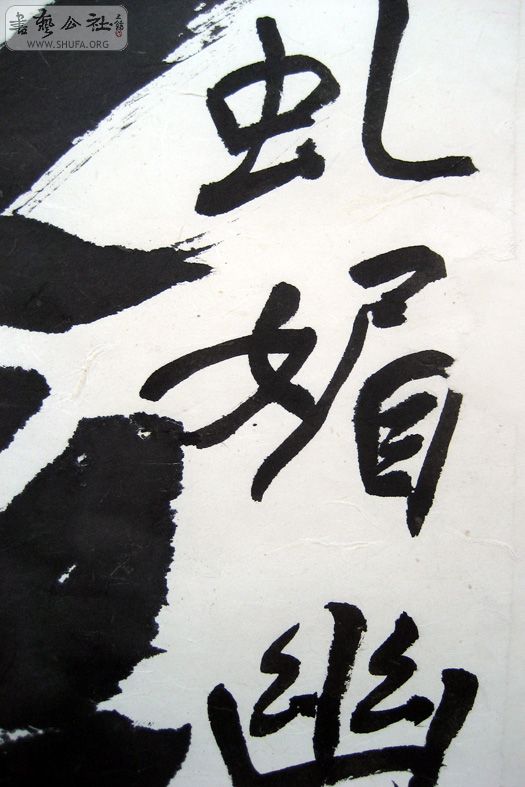 書藝公社
WWW.SHUFA.ORG
虬
媚
幽